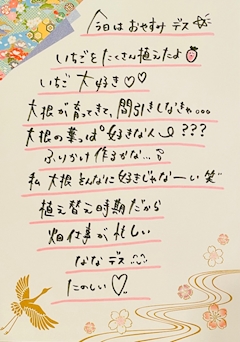 今日はおやすみ デス☆
いちごをたくさん植えたよ🍓
いちご 大好き♡♡
大根が育ってきて、間引きしなきゃ…
大根の葉っぱ 好きな人 ???
ふりかけ作るかな…
私 大根そんなに好きじゃなーい 笑
植え替え時期だから
畑仕事が忙しい
ななデス
たのしい♡.